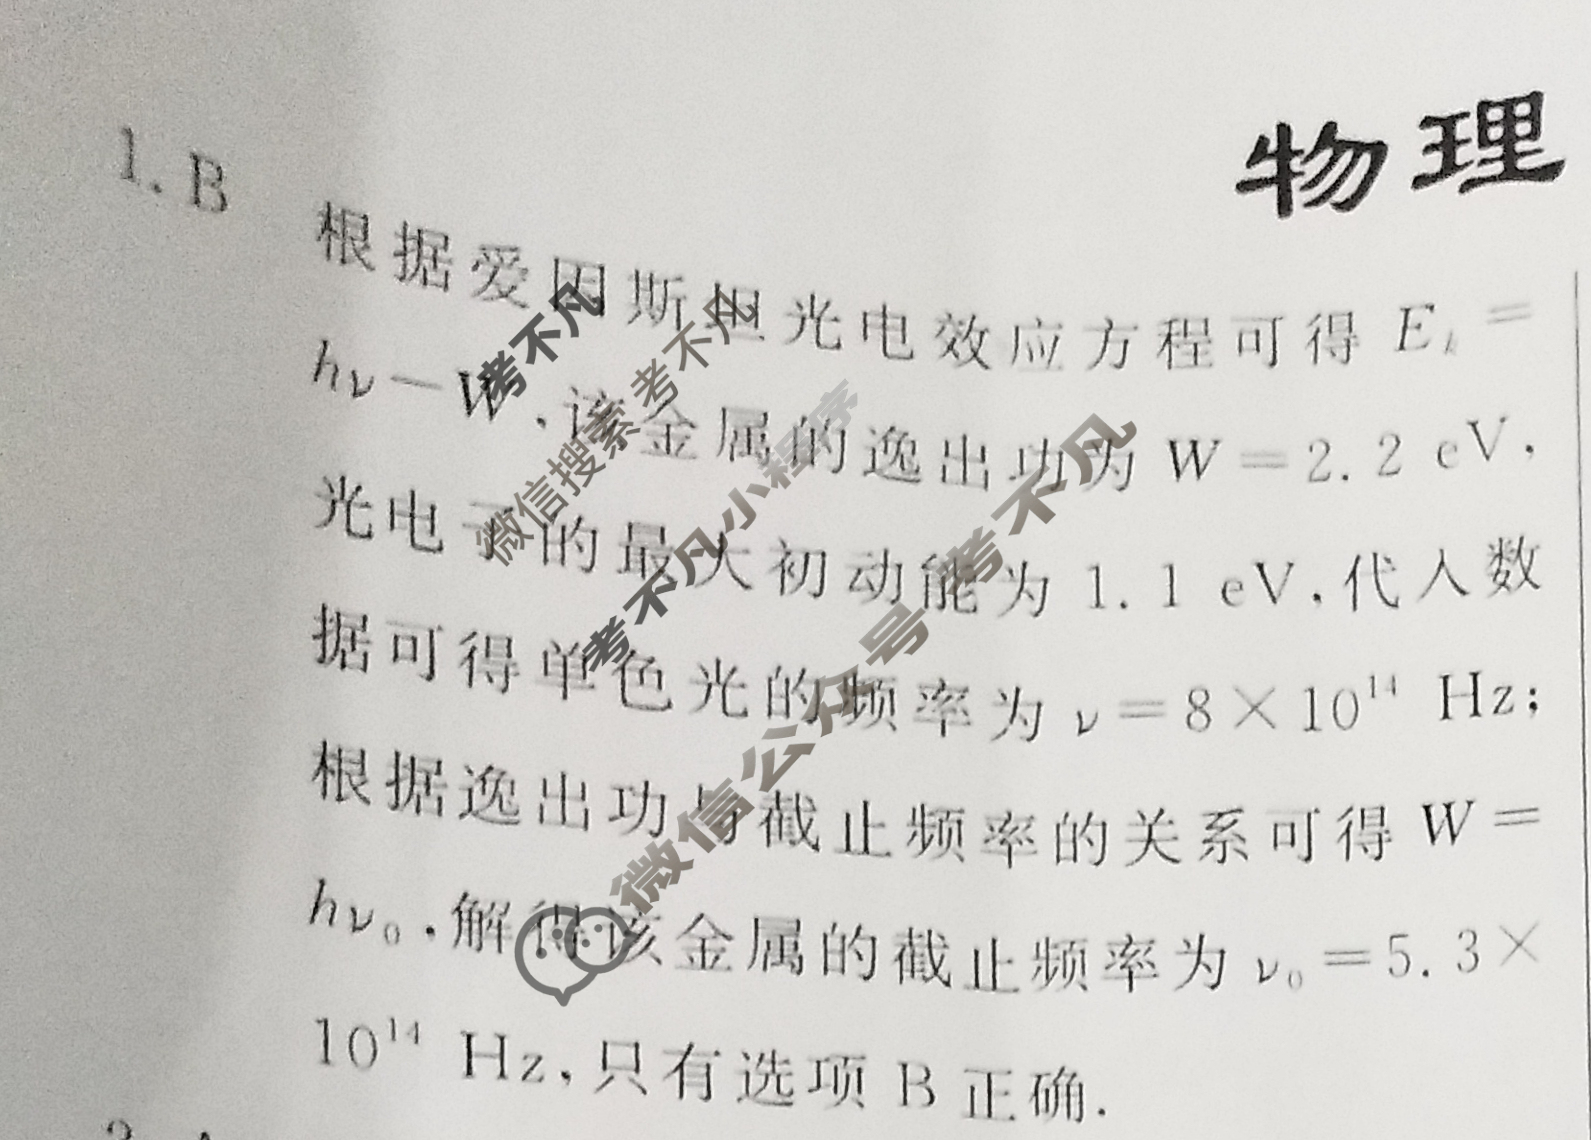 物理
1. B 根据爱因斯坦光电效应方程可得 Eₖ =
hν－W, 该金属的逸出功为 W＝2.2 eV,
光电子的最大初动能为 1.1 eV, 代入数
据可得单色光的频率为 ν＝8×10¹⁴ Hz;
根据逸出功与截止频率的关系可得 W＝
hν₀, 解得该金属的截止频率为 ν₀＝5.3×
10¹⁴ Hz, 只有选项 B 正确.
考不凡
微信搜索 考不凡
考不凡小程序
微信公众号 考不凡